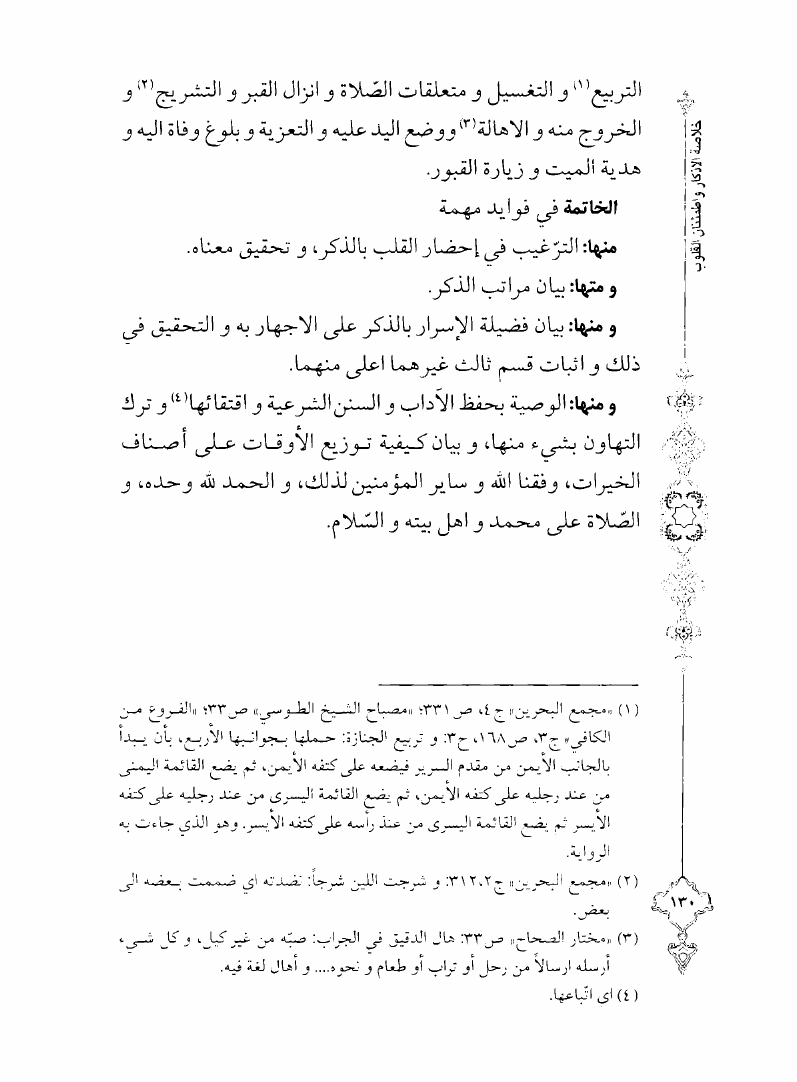 التربيع(١) و التغسيل و متعلقات الصّلاة و انزال القبر و التشريج(٢) و
الخروج منه و الاهالة(٣) ووضع اليد عليه و التعزية و بلوغ وفاة اليه و
هدية الميت و زيارة القبور.
الخاتمة في فوايد مهمة
منها: الترّغيب في إحضار القلب بالذكر، و تحقيق معناه.
و متها: بيان مراتب الذكر.
و منها: بيان فضيلة الإسرار بالذكر على الاجهار به و التحقيق في
ذلك و اثبات قسم ثالث غيرهما اعلى منهما.
و منها: الوصية بحفظ الآداب و السنن الشرعية و اقتقائها(٤) و ترك
التهاون بشيء منها، و بيان كيفية توزيع الأوقات على أصناف
الخيرات، وفقنا الله و ساير المؤمنين لذلك، و الحمد لله وحده، و
الصّلاة على محمد و اهل بيته و السّلام.
(١) «مجمع البحرين» ج ٤، ص ٣٣١؛ «مصباح الشيخ الطوسي» ص ٣٣؛ «الفروع من
الكافي» ج٣، ص ١٦٨، ح٣: و تربيع الجنازة: حملها بجوانبها الأربع، بأن يبدأ
بالجانب الأيمن من مقدم السرير فيضعه على كتفه الأيمن، ثم يضع القائمة اليمنى
من عند رجليه على كتفه الأيمن، ثم يضع القائمة اليسرى من عند رجليه على كتفه
الأيسر ثم يضع القائمة اليسرى من عند رأسه على كتفه الأيسر. وهو الذي جاءت به
الرواية.
(٢) «مجمع البحرين» ج ٢، ٣١٢: و شرجت اللبن شرجاً: نضدته اي ضممت بعضه الى
بعض.
(٣) «مختار الصحاح» ص ٣٣: هال الدقيق في الجراب: صبّه من غير كيل، و كل شيء،
أرسله ارسالاً من رحل أو تراب أو طعام و نحوه.... و أهال لغة فيه.
(٤) اى اتّباعها.
خلاصة الاذكار و اطمئنان القلوب
١٣٠